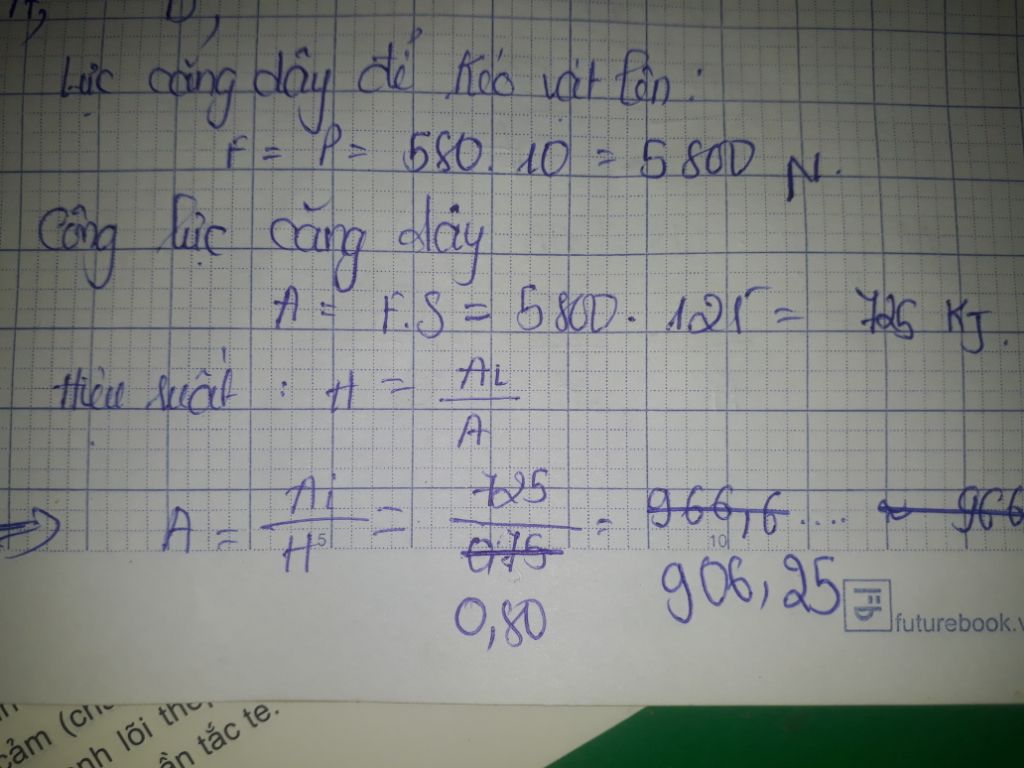 Lực căng dây để kéo vật lên :
F = P = 580. 10 = 5800 N.
Công lực căng dây
A = F.S = 5800. 125 = 725 KJ.
Hiệu suất : H = Ai / A
=> A = Ai / H = 725 / 0,75 = 966,6 .... ~ 966
0,80 906,25
5 10
futurebook.v
cảm (ch
nh lõi thé
ần tắc te.